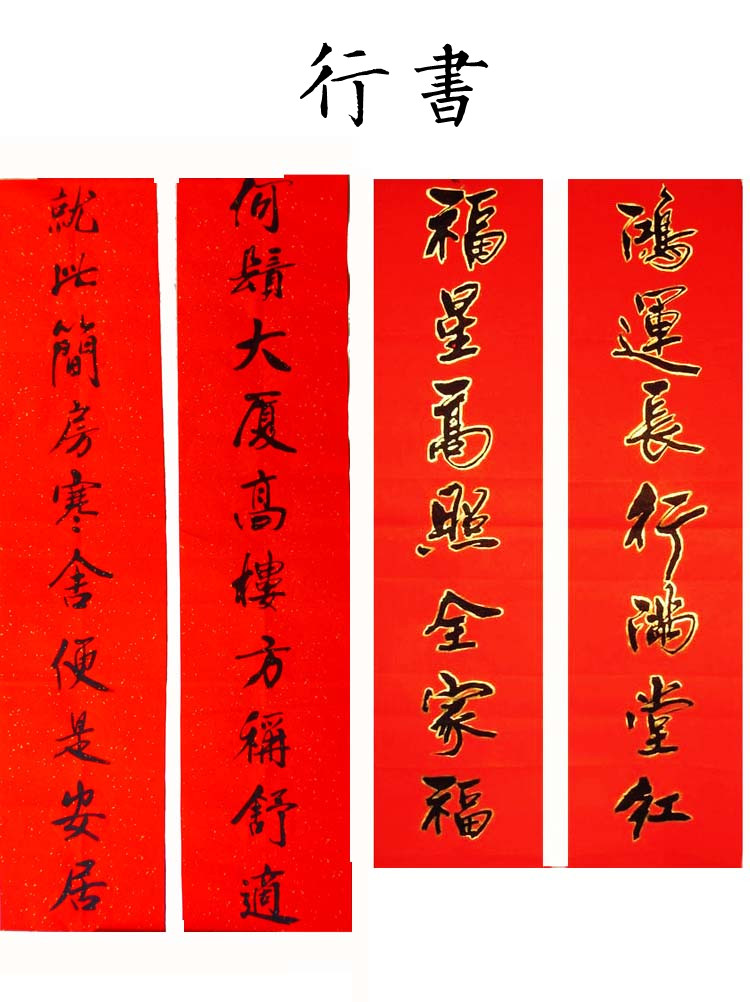 行書
鴻運長行滿堂紅
福星高照全家福
何須大厦高樓方稱舒適
就此簡房寒舍便是安居